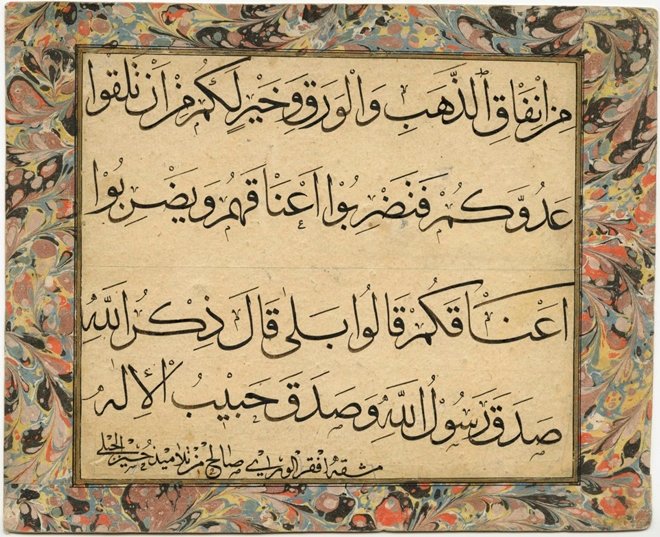 مِنْ اِنْفَاقِ الذَّهَبِ وَالْوَرَقِ وَخَيْرٍ لَكُمْ مِنْ اَنْ تَلْقَوْا
عَدُوَّكُمْ فَتَضْرِبُوا اَعْنَاقَهُمْ وَيَضْرِبُوا
اَعْنَاقَكُمْ قَالُوا بَلٰى قَالَ ذِكْرُ اللّٰهِ
صَدَقَ رَسُولُ اللّٰهِ وَصَدَقَ حَبِيبُ الْاِلٰهِ
مشقه افقر الورى صالح من تلاميذ حسين